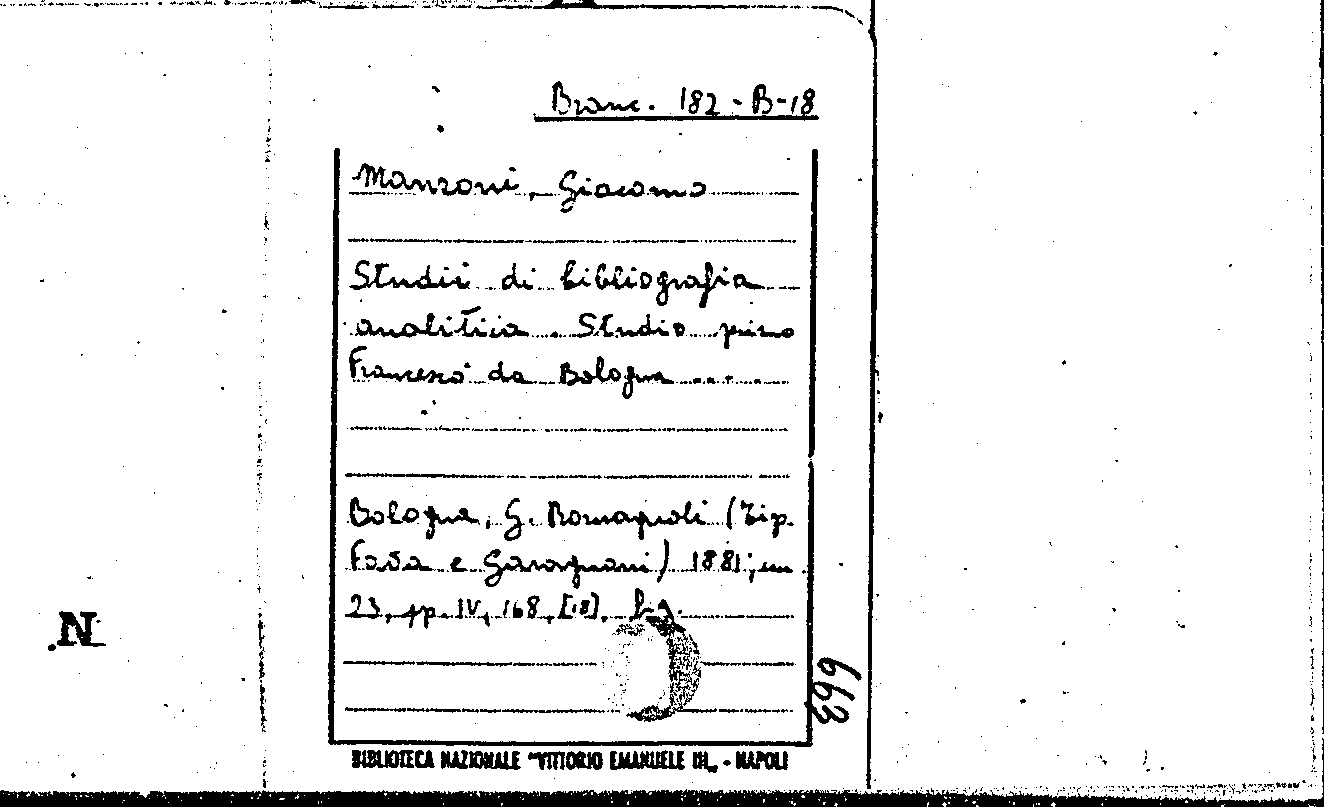 Branc. 182-B-18
Manzoni, Giacomo
Studii di bibliografia
analitica. Studio primo
Francesco da Bologna ....
Bologna, G. Romagnoli (Tip.
Fava e Garagnani) 1881; cm
23, pp. IV, 168, [18].
663
N.
BIBLIOTECA NAZIONALE "VITTORIO EMANUELE III„ - NAPOLI